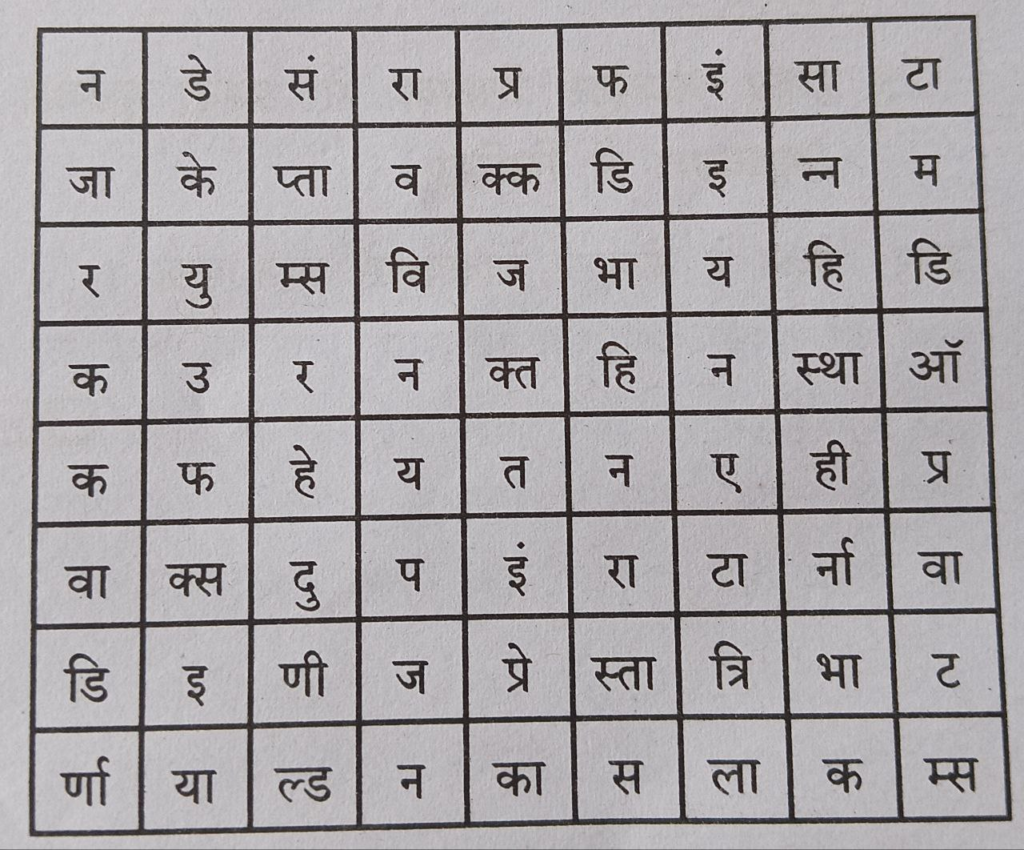 न डे सं रा प्र फ इं सा टा
जा के प्ता व क्क डि इ न्न म
र यु म्स वि ज भा य हि डि
क उ र न क्त हि न स्था ऑ
क फ हे य त न ए ही प्र
वा क्स दु प इं रा टा र्ना वा
डि इ णी ज प्रे स्ता त्रि भा ट
र्णा या ल्ड न का स ला क म्स